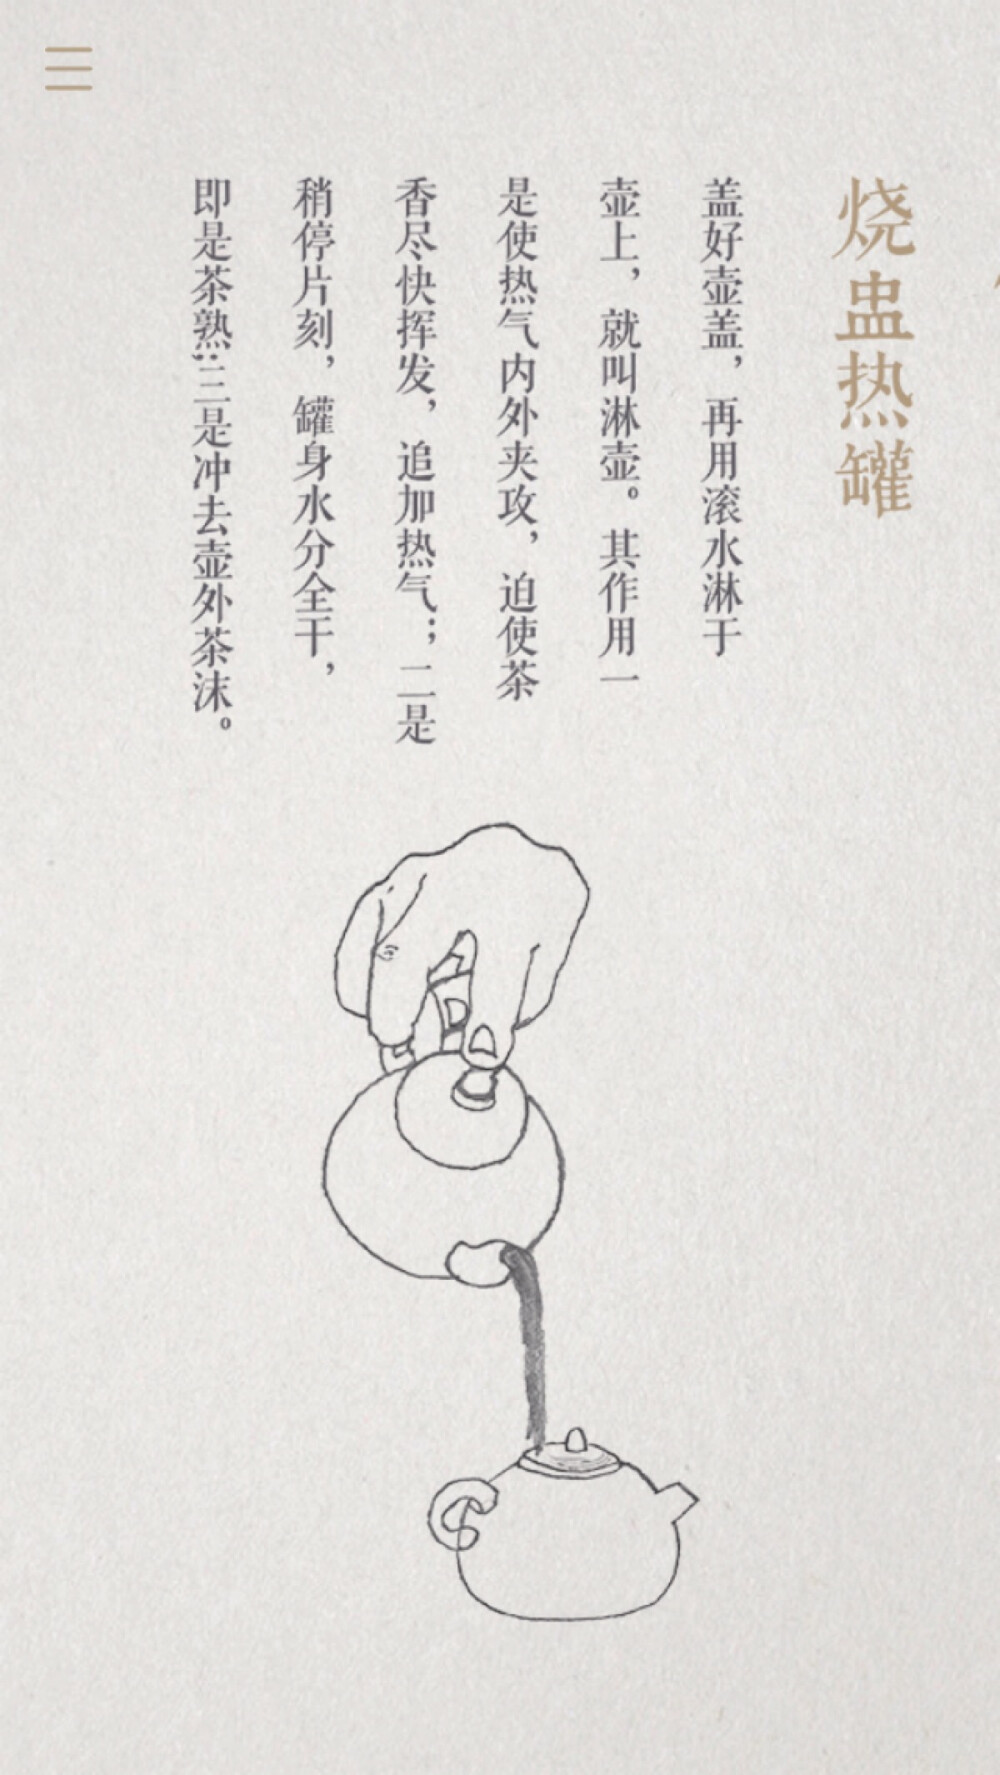 烧盅热罐
盖好壶盖，再用滚水淋于
壶上，就叫淋壶。其作用一
是使热气内外夹攻，迫使茶
香尽快挥发，追加热气；二是
稍停片刻，罐身水分全干，
即是茶熟；三是冲去壶外茶沫。